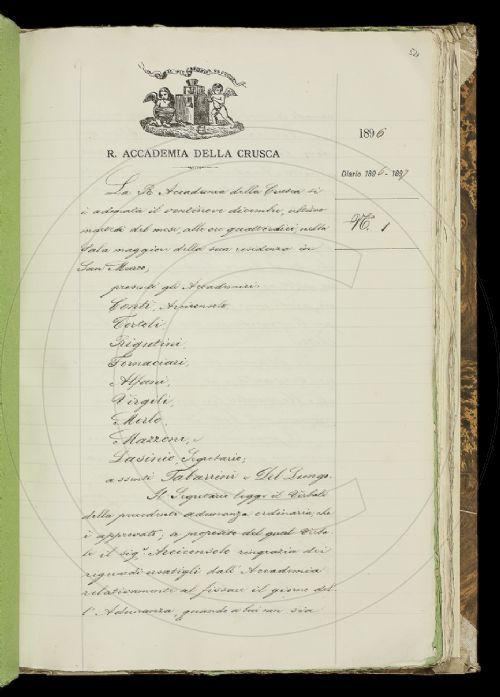 50
1896
R. ACCADEMIA DELLA CRUSCA
Diario 1896-1897
N. 1
La R. Accademia della Crusca si
è adunata il ventinove dicembre, ultimo
martedì del mese, alle ore quattordici, nella
Sala maggiore della sua residenza in
San Marco,
presenti gli Accademici:
Conti, Arciconsolo,
Tortoli,
Rigutini,
Fornaciari,
Alfani,
Virgili,
Merlo,
Mazzoni, e
Lasinio, Segretario;
assenti Tabarrini e Del Lungo.
Il Segretario legge il Verbale
della precedente adunanza ordinaria, che
è approvato; a proposito del qual Verba-
le il sig.r Arciconsolo ringrazia dei
riguardi usatigli dall'Accademia
relativamente al fissare il giorno del-
l'Adunanza quando a lui non sia